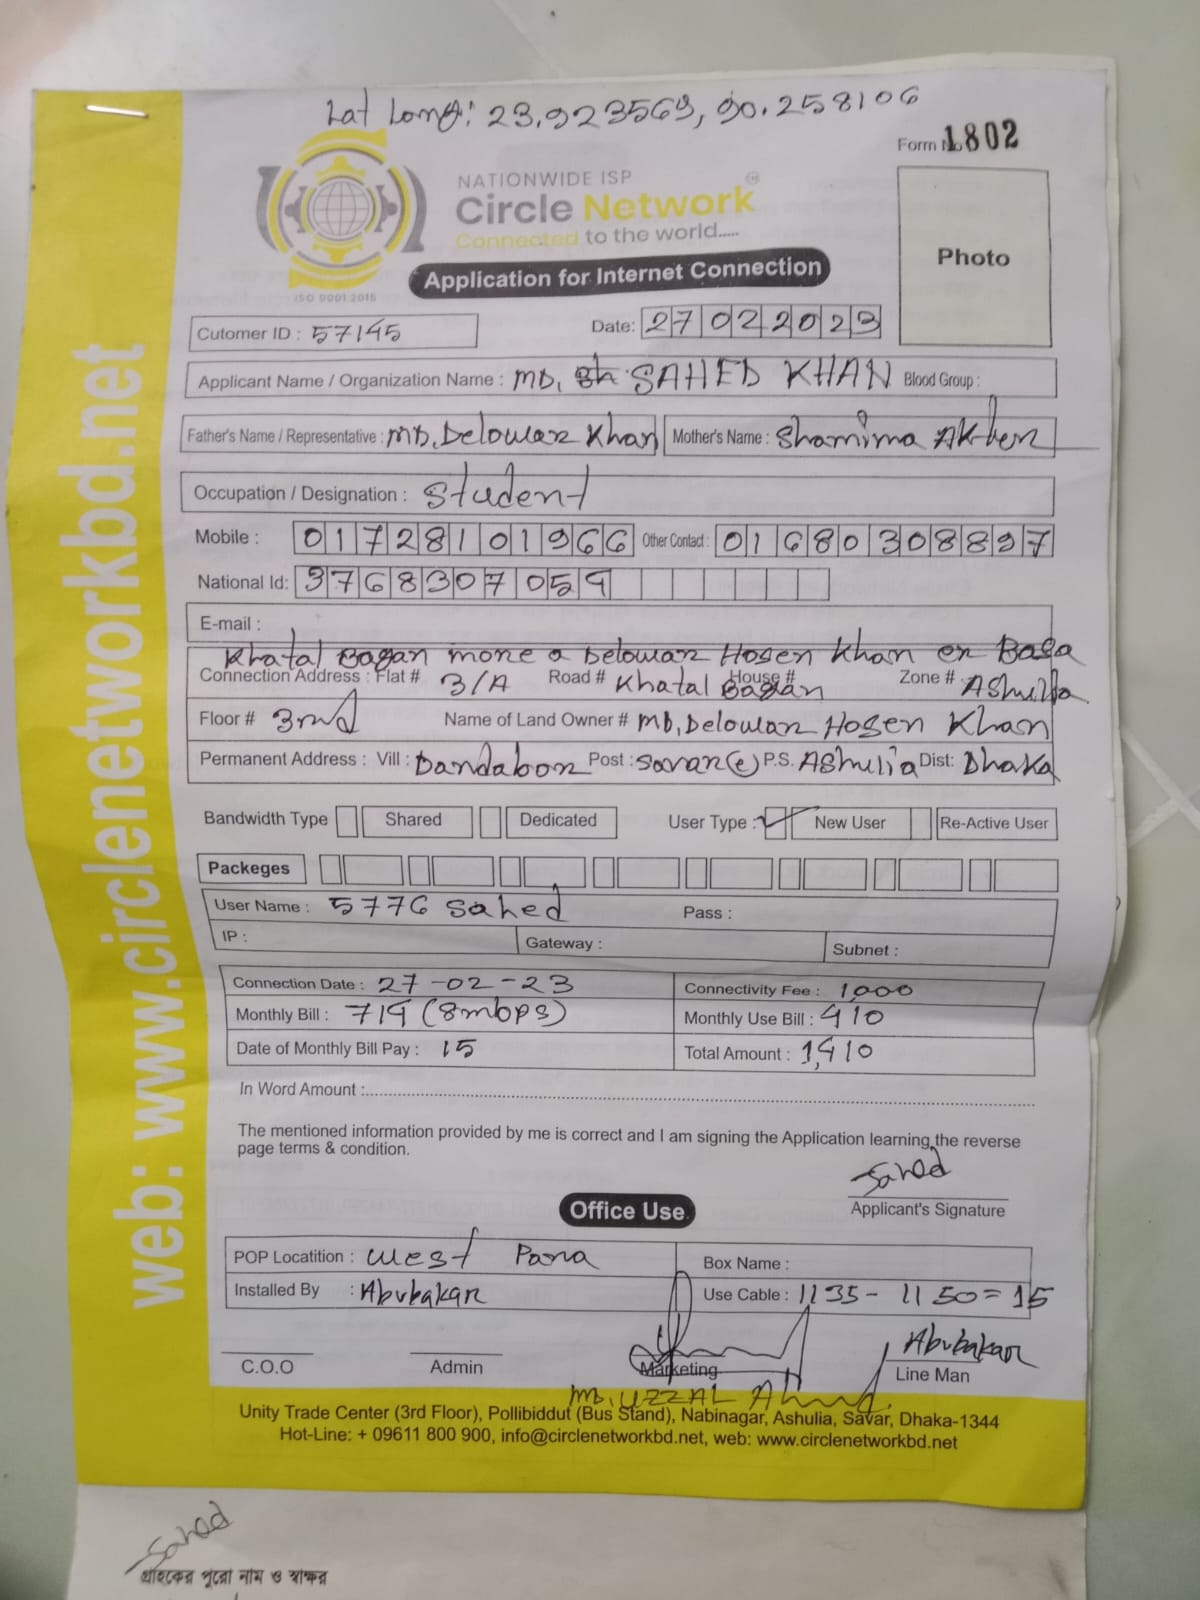 Lat Long: 23.923569, 90.258106
Form No 1802
NATIONWIDE ISP
Circle Network
Connected to the world.....
ISO 9001:2015
Application for Internet Connection
Photo
Cutomer ID : 57145
Date: 27022023
Applicant Name / Organization Name : MD. SAHED KHAN Blood Group :
Father's Name / Representative : MD. Delowar Khan Mother's Name : Shamima Akter
Occupation / Designation : Student
Mobile : 01728101966 Other Contact : 01680308897
National Id: 3768307059
E-mail :
Khatal Bagan more a Delowar Hosen Khan er Basa
Connection Address : Flat # 3/A Road # Khatal Bagan House # Zone # Ashulia
Floor # 3rd Name of Land Owner # MD. Delowar Hosen Khan
Permanent Address : Vill : Dandabor Post : Savar(e) P.S. Ashulia Dist: Dhaka
Bandwidth Type Shared Dedicated User Type : New User Re-Active User
Packeges
User Name : 5776 Sahed Pass :
IP : Gateway : Subnet :
Connection Date : 27-02-23 Connectivity Fee : 1,000
Monthly Bill : 714 (8mbps) Monthly Use Bill : 410
Date of Monthly Bill Pay : 15 Total Amount : 1,410
In Word Amount :
The mentioned information provided by me is correct and I am signing the Application learning the reverse
page terms & condition.
Sahed
Applicant's Signature
Office Use
POP Locatition : West Para Box Name :
Installed By : Abubakar Use Cable : 1135 - 1150 = 15
Abubakar
C.O.O Admin Marketing Line Man
MD. UZZAL Ahmed
Unity Trade Center (3rd Floor), Pollibiddut (Bus Stand), Nabinagar, Ashulia, Savar, Dhaka-1344
Hot-Line: + 09611 800 900, info@circlenetworkbd.net, web: www.circlenetworkbd.net
web: www.circlenetworkbd.net
Sahed
গ্রাহকের পুরো নাম ও স্বাক্ষর